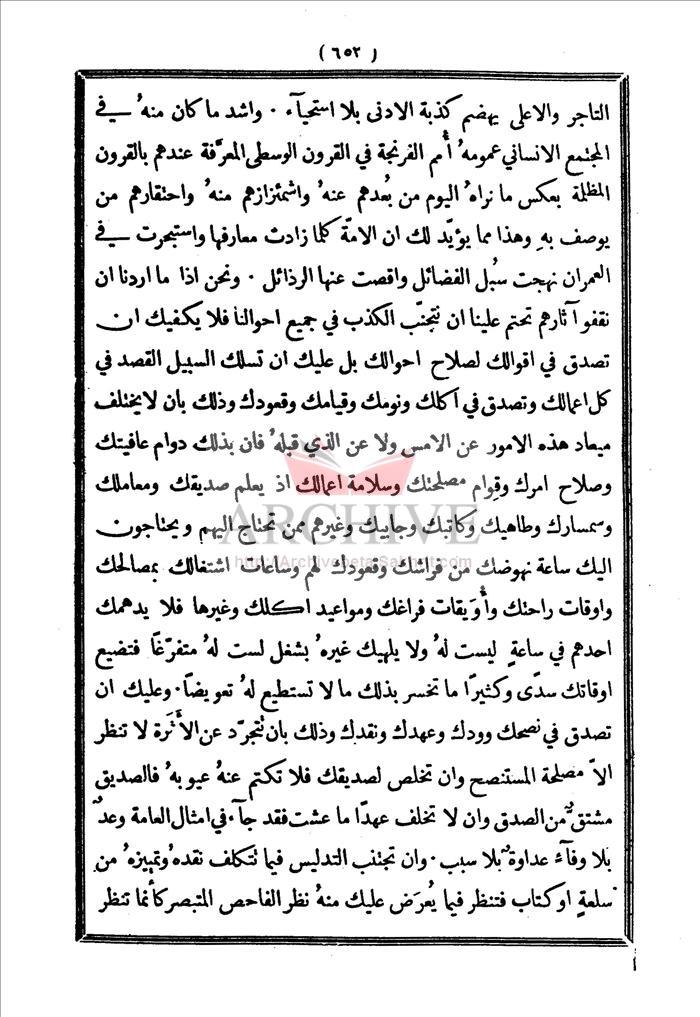 ( ٦٥٢ )
التاجر والاعلى يهضم كذبة الادنى بلا استحيآء . واشد ما كان منهُ في
المجتمع الانساني عمومهُ أُمم الفرنجة في القرون الوسطى المعرَّفة عندهم بالقرون
المظلمة بعكس ما نراهُ اليوم من بُعدهم عنهُ واشمئزازهم منهُ واحتقارهم من
يوصف بهِ وهذا مما يؤيّد لك ان الامّة كلما زادت معارفها واستبحرت في
العمران نهجت سُبل الفضائل واقصت عنها الرذائل . ونحن اذا ما اردنا ان
نقفو آثارهم تحتم علينا ان نتجنّب الكذب في جميع احوالنا فلا يكفيك ان
تصدق في اقوالك لصلاح احوالك بل عليك ان تسلك السبيل القصد في
كل اعمالك وتصدق في اكلك ونومك وقيامك وقعودك وذلك بان لا يختلف
ميعاد هذه الامور عن الامس ولا عن الذي قبلهُ فان بذلك دوام عافيتك
وصلاح امرك وقِوام مصلحتك وسلامة اعمالك اذ يعلم صديقك ومعاملك
وسمسارك وطاهيك وكاتبك وجابيك وغيرهم ممن تحتاج اليهم ويحتاجون
اليك ساعة نهوضك من فراشك وقعودك لهم وساعات اشتغالك بمصالحك
واوقات راحتك وأُوَيقات فراغك ومواعيد اكلك وغيرها فلا يدهمك
احدهم في ساعةٍ ليست لهُ ولا يلهيك غيرهُ بشغل لست لهُ متفرّغًا فتضيع
اوقاتك سدًى وكثيرًا ما تخسر بذلك ما لا تستطيع لهُ تعويضًا . وعليك ان
تصدق في نصحك وودك وعهدك ونقدك وذلك بان تتجرّد عن الأَثَرة لا تنظر
الاّ مصلحة المستنصح وان تخلص لصديقك فلا تكتم عنهُ عيوبهُ فالصديق
مشتقٌّ من الصدق وان لا تخلف عهدًا ما عشت فقد جآء في امثال العامة وعدٌ
بلا وفآء عداوةٌ بلا سبب . وان تجتنب التدليس فيما تتكلف نقدهُ وتمييزهُ من
سلعةٍ او كتاب فتنظر فيما يُعرَض عليك منهُ نظر الفاحص المتبصر كأنما تنظر
ARCHIVE
http://Archivebeta.Sakhrit.com